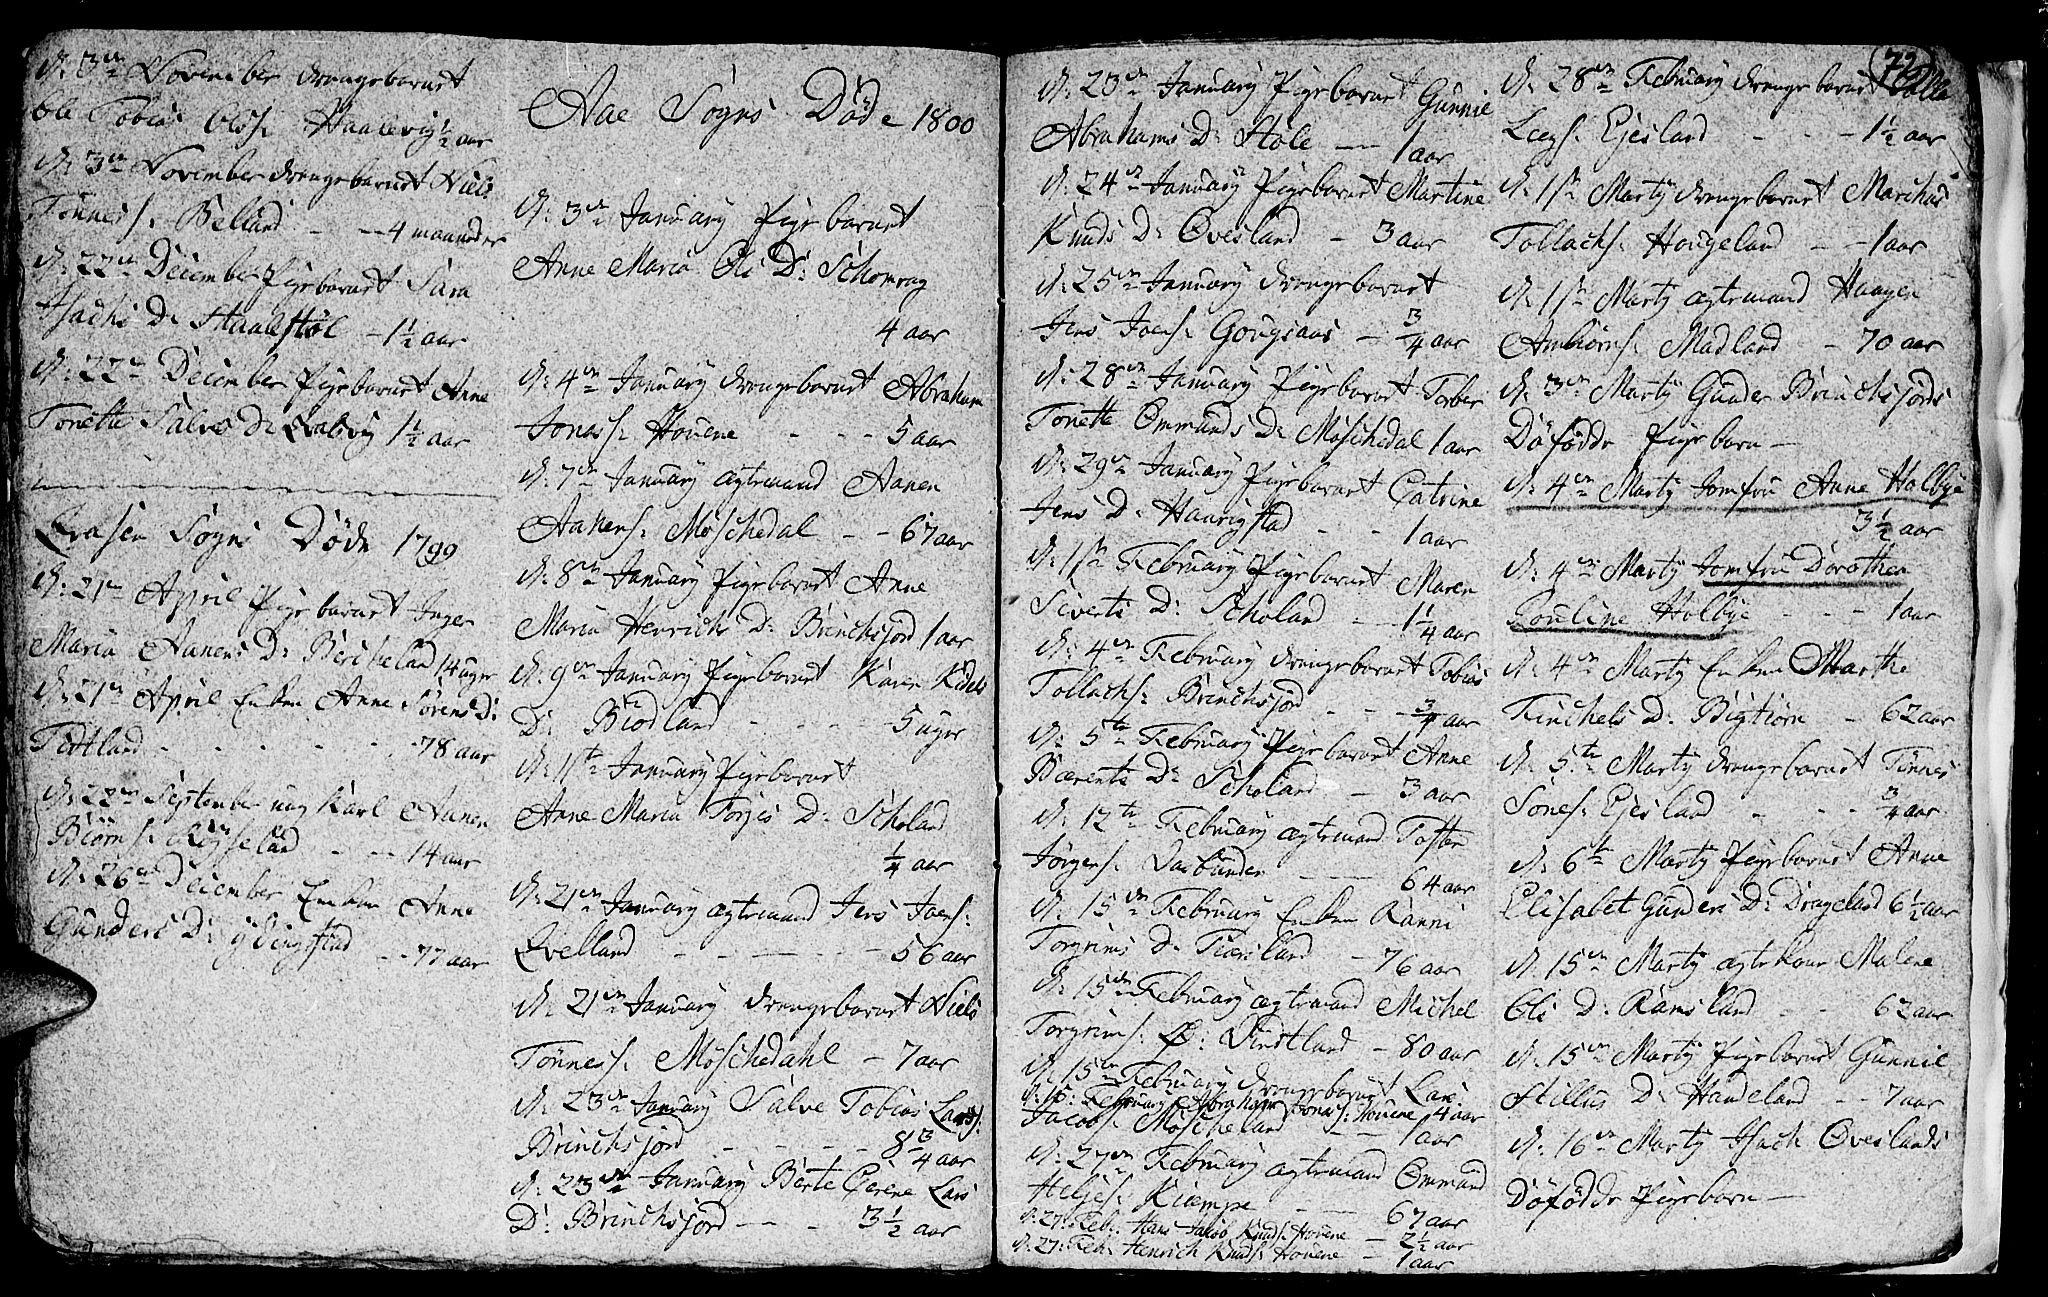 d: 3en November drengebarnet
Ole Tobias Olos: Haalevig ½ aar
d: 3en November drengebarnet Niels
Tønnes: Belland - - 4 maaneder
d: 22en December Pigebarnet Sara
Isachs D: Staalestøl - 1½ aar
d: 22en December Pigebarnet Anne
Tonette Salves D: 1½ aar
Sogns Døde 1799
d: 21en April Pigebarnet Inger
Maria Aanens D: Bircheland 14 uger
d: 21en April Enken Anne Sørens D:
- - - - - 78 aar
d: 22en September ung Karl Aanen
Biørns: Røyseland - - 14 aar
d: 26en December Enken Anne
Gunders D: - - 77 aar
Aae Sogns Døde 1800
d: 3en January Pigebarnet
Anne Maria Ols D: Schomrag
4 aar
d: 4en January drengebarnet Abraham
Jonas: Houene - - - 5 aar
d: 7en January ægtemand Aanen
Aanens: Møschedal - - 67 aar
d: 8en January Pigebarnet Anne
Maria Henrichs D: Brinchsjord 1 aar
d: 9en January Pigebarnet Karen Kidels
D: Biodland - - - - 5 uger
d: 11te January Pigebarnet
Anne Maria Torjes D: Scholand
¼ aar
d: 21en January ægtemand Jens Joens:
Evelland - - - - - 56 aar
d: 21en January drengebarnet Niels
Tønnes: Møschedahl - 7 aar
d: 23en January Salve Tobias Lars:
Brinchsjord - - - - 8¾ aar
d: 23en January Berte Lars
D: Brinchsjord - - - 3½ aar
d: 23en January Pigebarnet Gunnil
Abrahams D: Støle - 1 aar
d: 24en January Pigebarnet Martine
Knuds D: Øvesland - 3 aar
d: 25en January drengebarnet
Jens Joens: Gougsaas - ¾ aar
d: 28en January Pigebarnet Torber
Tonette Ommunds D: Møschedal 1 aar
d: 29en January Pigebarnet Catrine
Jens D: Haarigstad - - 1 aar
d: 1ste February Pigebarnet Maren
Siverts D: Scholand - - 1¼ aar
d: 4en February drengebarnet Tobias
Tollachs: Brinchsjord - - ¾ aar
d: 5te February Pigebarnet Anne
Bærents D: Scholand - 3 aar
d: 12te February ægtemand Tosten
Jørgens: - 64 aar
d: 15en February Enken Ranni
Torgrims D: Fiæsland - 76 aar
d: 15en February ægtemand Michel
Torgrims: Ø: Vindtland - 80 aar
d: 15en February drengebarnet Lars
d: 16: February Abraham Jonas: Houene 4 aar
Jacobs: Møscheland - - 1 aar
d: 27en February ægtemand Ommund
Heljes: Kiempe - - 67 aar
d: 27: Feb: Hans Jakob Knuds: Houene - 2½ aar
d: 27: Feb: Henrich Knuds: Houene - 1 aar
72
d: 28en February drengebarnet Salve
Legs: Ejesland - - - 1½ aar
d: 1ste Marty drengebarnet Marchus
Tollachs: Hougeland - - 1 aar
d: 1ste Marty ægtemand Haagen
Anbiørns: Madland - 70 aar
d: 3en Marty Gunder Brinchsjords
Døfødde Pigebarn -
d: 4en Marty Jomfru Anne Holbye
3½ aar
d: 4en Marty Jomfru Dorothea
Pouline Holbye - - - 1 aar
d: 4en Marty Enken Marthe
Finchels D: Bigtiørn - 62 aar
d: 5te Marty drengebarnet Tønnes
Sones: Ejesland - - - ¾ aar
d: 6te Marty Pigebarnet Anne
Elisabet Gunders D: Drageland 6½ aar
d: 15en Marty ægtekone Malene
Ols D: Ramsland - - 62 aar
d: 15en Marty Pigebarnet Gunnil
Stillus D: Handeland - - 7 aar
d: 16en Marty Isach Øveslands
Døfødde Pigebarn -